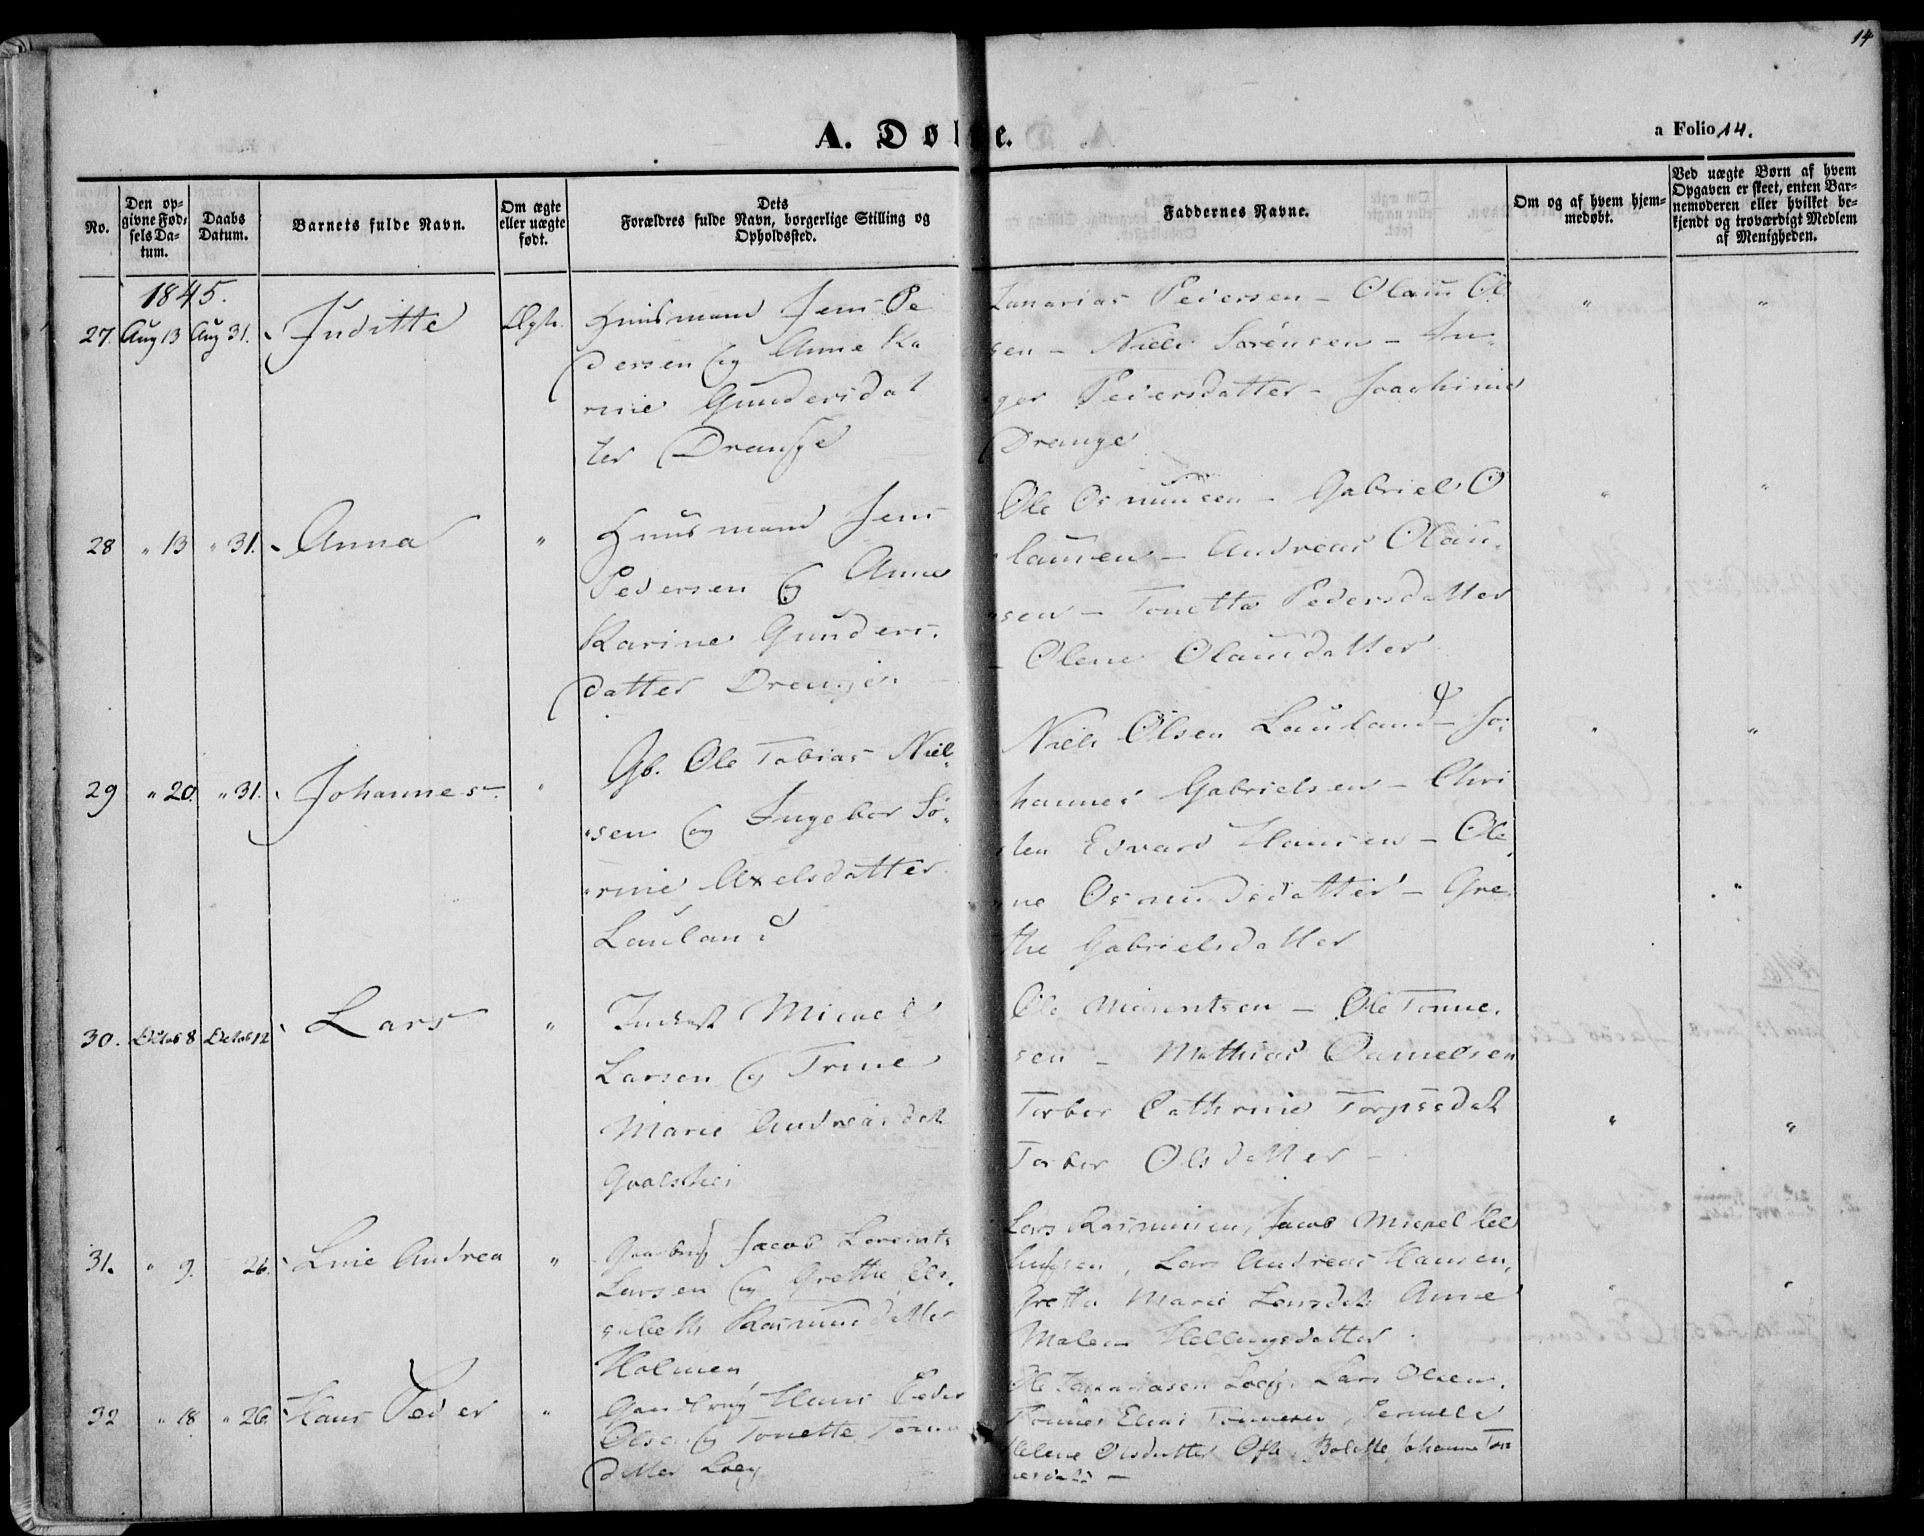 14
A. Døbte.
a Folio 14.
No.
Den op-
givne Fød-
sels Da-
tum.
Daabs
Datum.
Barnets fulde Navn.
Om ægte
eller uægte
født.
Dets
Forældres fulde Navn, borgerlige Stilling og
Opholdssted.
Faddernes Navne.
Om og af hvem hjem-
medøbt.
Ved uægte Børn af hvem
Opgaven er skeet, enten Bar-
nemoderen eller hvilket be-
kjendt og troværdigt Medlem
af Menigheden.
1845.
27. Aug 13 Aug 31. Juditte Ægte.
Huusmand Jens Pe
dersen og Anne Ka
rine Gundersdat
ter Drange
Zacharias Pedersen - Olaus Ol
sen - Niels Sørensen - In-
ger Pedersdatter - Joachime
Drange
28 " 13 " 31. Anna "
Huusmand Jens
Pedersen og Anne
Karine Gunders-
datter Drange
Ole Osmundsen - Gabriel O
lausen - Andreas Olau-
sen - Tonette Pedersdatter
- Olene Olausdatter
29 " 20. " 31. Johannes "
Gb. Ole Tobias Niel-
sen og Ingebor Sø-
rine Axelsdatter
Lauland
Niels Olsen Lauland - Jo-
hannes Gabrielsen - Chri
sten Edvard Hansen - Ole
ne Osmundsdatter - Gre
the Gabrielsdatter
30. Octob 8 Octob 12 Lars "
Inderst Michel
Larsen og Trine
Marie Andreasdatt
Ole - Ole Tønne-
sen - Mathias Danielsen
Torbor Cathrine
Torbor Olsdatter -
31. " 9. 26. Line Andrea "
Gaardbrug Jacob Lorents
Larsen og Grethe Eli-
sabeth Rasmusdatter
Holmen
Lars Rasmussen, Jacob Michel
, Lars Andreas Hansen,
Grethe Marie Larsdatt Anne
Malene
32 " 18 " 26. Hans Peder "
Gaardbrug Hans Peder
Olsen og Tonette
datter
Ole , Lars Olsen,
Tønnes Elias Tønnesen,
Helene Olsdatter , Bolette Johanne Tøn
nesdatt -